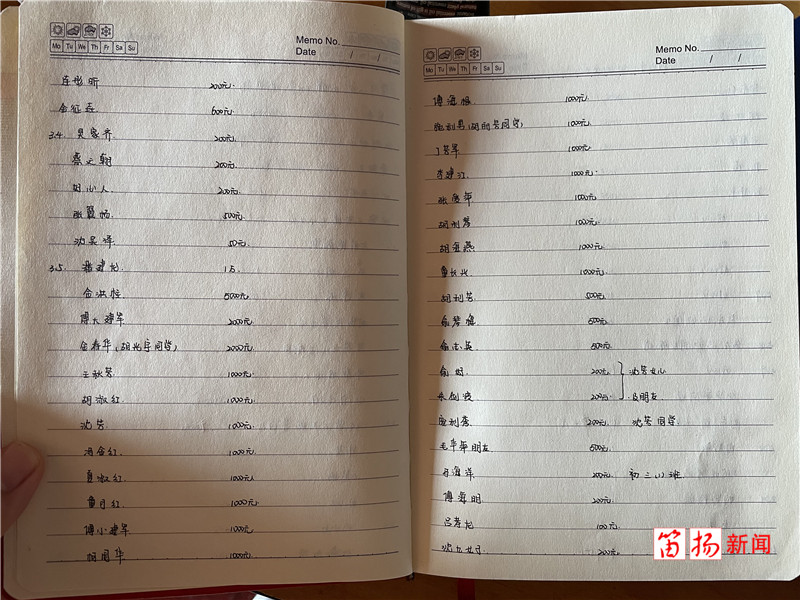 Mo Tu We Th Fr Sa Su
Memo No.
Date / /
200元.
金征垚 600元.
3.4. 吴家齐. 200元.
蔡元翱 200元.
胡心人. 200元.
张翼畅. 500元.
沈吴烽 50元.
3.5. 潘建龙 1万.
俞洪桩 5000元.
傅大建军 2000元.
金寿华(胡光宇同学) 2000元.
王秋芳 1000元.
胡淑红. 1000元.
沈芳 1000元.
冯金红. 1000元.
夏淑红. 1000元.
童月红. 1000元.
傅小建军 1000元.
胡国华 1000元.
Mo Tu We Th Fr Sa Su
Memo No.
Date / /
傅海娘. 1000元.
1000元.
丁芳军. 1000元.
李建江. 1000元.
张彦军 1000元.
胡利琴 1000元.
胡海燕 1000元.
童长兴 1000元.
胡利芳. 500元.
俞琴娥 600元.
俞志英. 500元.
俞妍. 200元 沈芳女儿
200元 及朋友.
应利秀. 200元. 沈芳同学.
毛华军朋友 600元.
月海洋. 200元. 初三(1)班
傅海明 200元.
吕寿龙 100元.
200元.
笛扬新闻